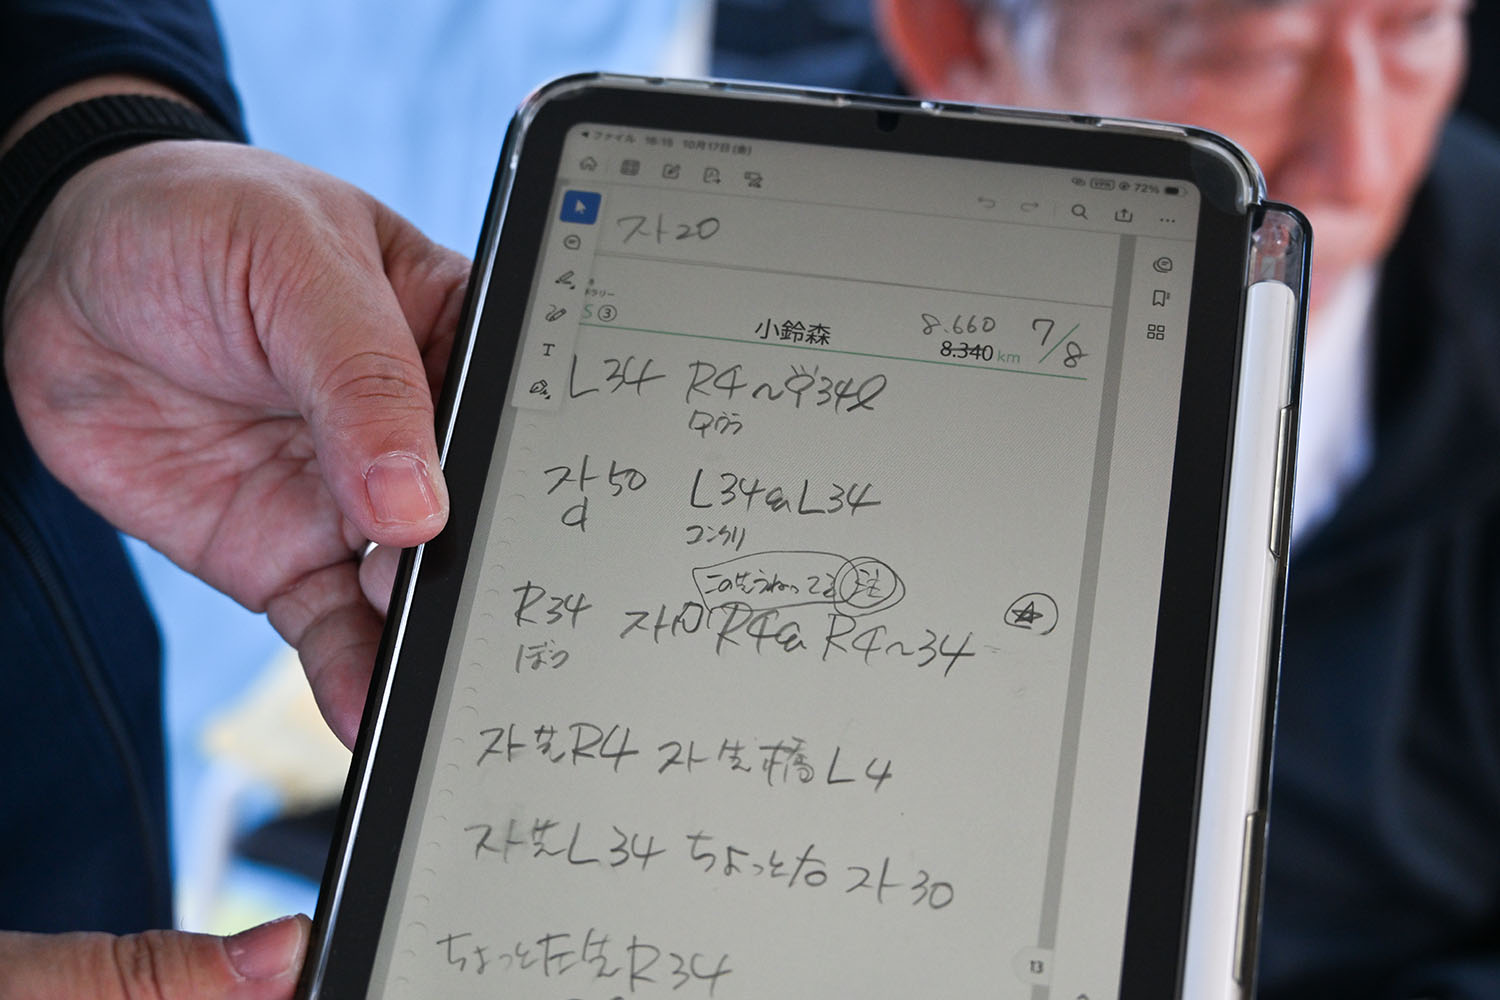 ファイル 16:15 10月17日(金) VPN 72%
スト20
ラリー
S ③ 小鈴森 8.660 7/8
8.340 km
L34 R4〜 34ℓ
スト50 L34 L34
d コンクリ
この先うねってる 注
R34 スト R4 R4〜34
ぼつ
スト先R4 スト先橋L4
スト先L34 ちょっと右 スト30
ちょっと左先R34
13
T